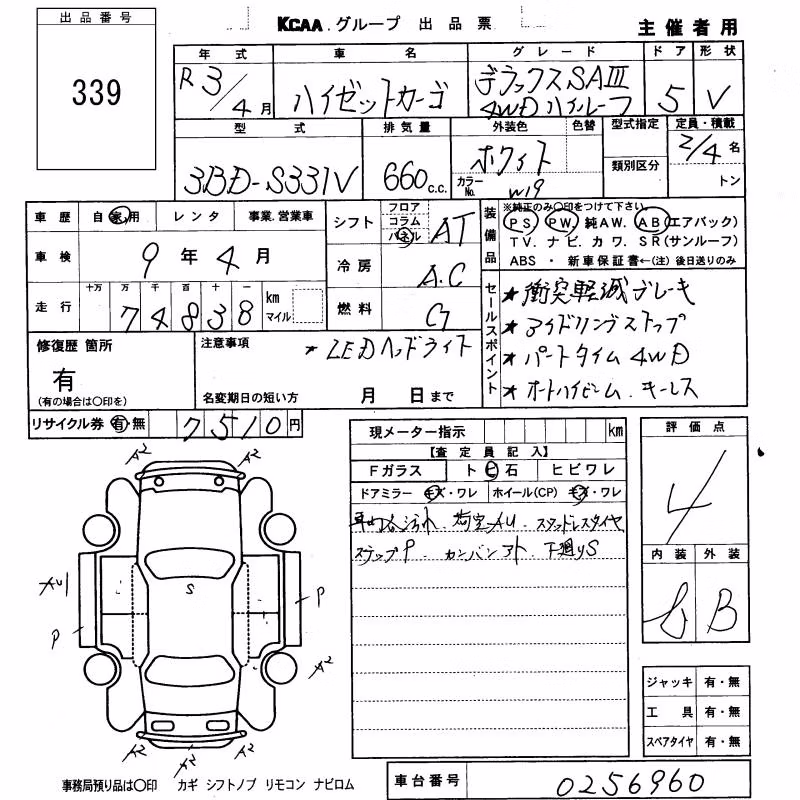 出品番号
339
KCAA グループ 出品票
主催者用
年式 車名 グレード ドア 形状
R3/4月 ハイゼットカーゴ デラックスSAIII 4WD ハイルーフ 5 V
型式 排気量 外装色 色替 型式指定 定員・積載
3BD-S331V 660 c.c. ホワイト 類別区分 2/4名
カラーNo. W19 トン
車歴 自家用 レンタ 事業.営業車
車検 9年4月
走行 十万 万 千 百 十 一
74838 km マイル
シフト フロア コラム パネル AT
冷房 A.C
燃料 G
装備品 ※純正のみ〇印をつけて下さい。
PS PW 純AW. AB(エアバック)
TV. ナビ. カワ. SR(サンルーフ)
ABS ・ 新車保証書←(注) 後日送りのみ
セールスポイント
★衝突軽減ブレーキ
★アイドリングストップ
★パートタイム4WD
★オートハイビーム.キーレス
修復歴 箇所
有
(有の場合は〇印を)
注意事項 ★LEDヘッドライト
名変期日の短い方 月 日まで
リサイクル券 有 無 7510円
現メーター指示 km
【査定員記入】
Fガラス ト ヒ 石 ヒビワレ
ドアミラー キズ・ワレ ホイール(CP) キズ・ワレ
荷室AU. スタッドレスタイヤ
ステップP. カンバンアト. 下廻りS
評価点
4
内装 外装
B
A2 A2
AU
P
S
P
A2
A2 A2 A2
ジャッキ 有・無
工具 有・無
スペアタイヤ 有・無
事務局預り品は〇印 カギ シフトノブ リモコン ナビロム
車台番号 0256960